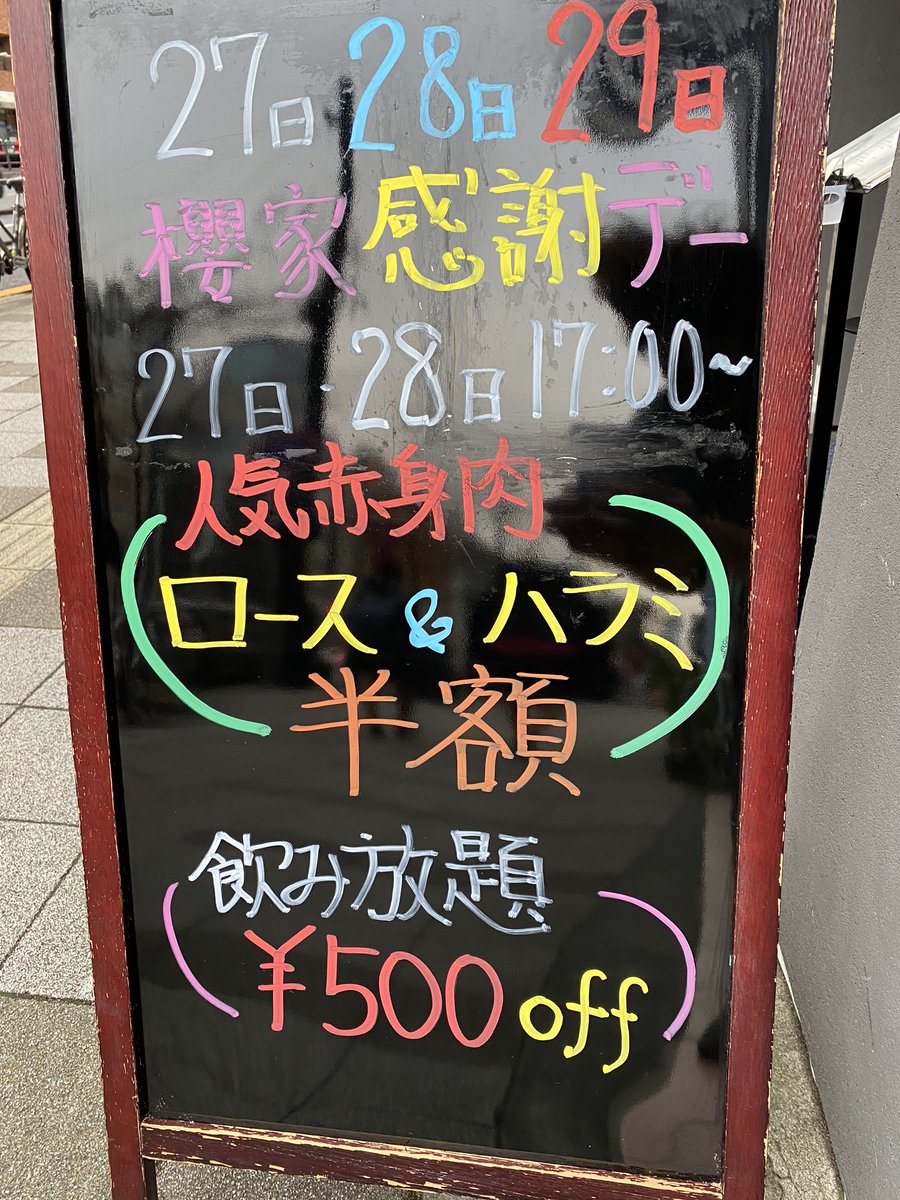 27日 28日 29日
櫻家 感謝デー
27日・28日 17:00~
人気赤身肉
ロース & ハラミ
半額
飲み放題
¥500 off